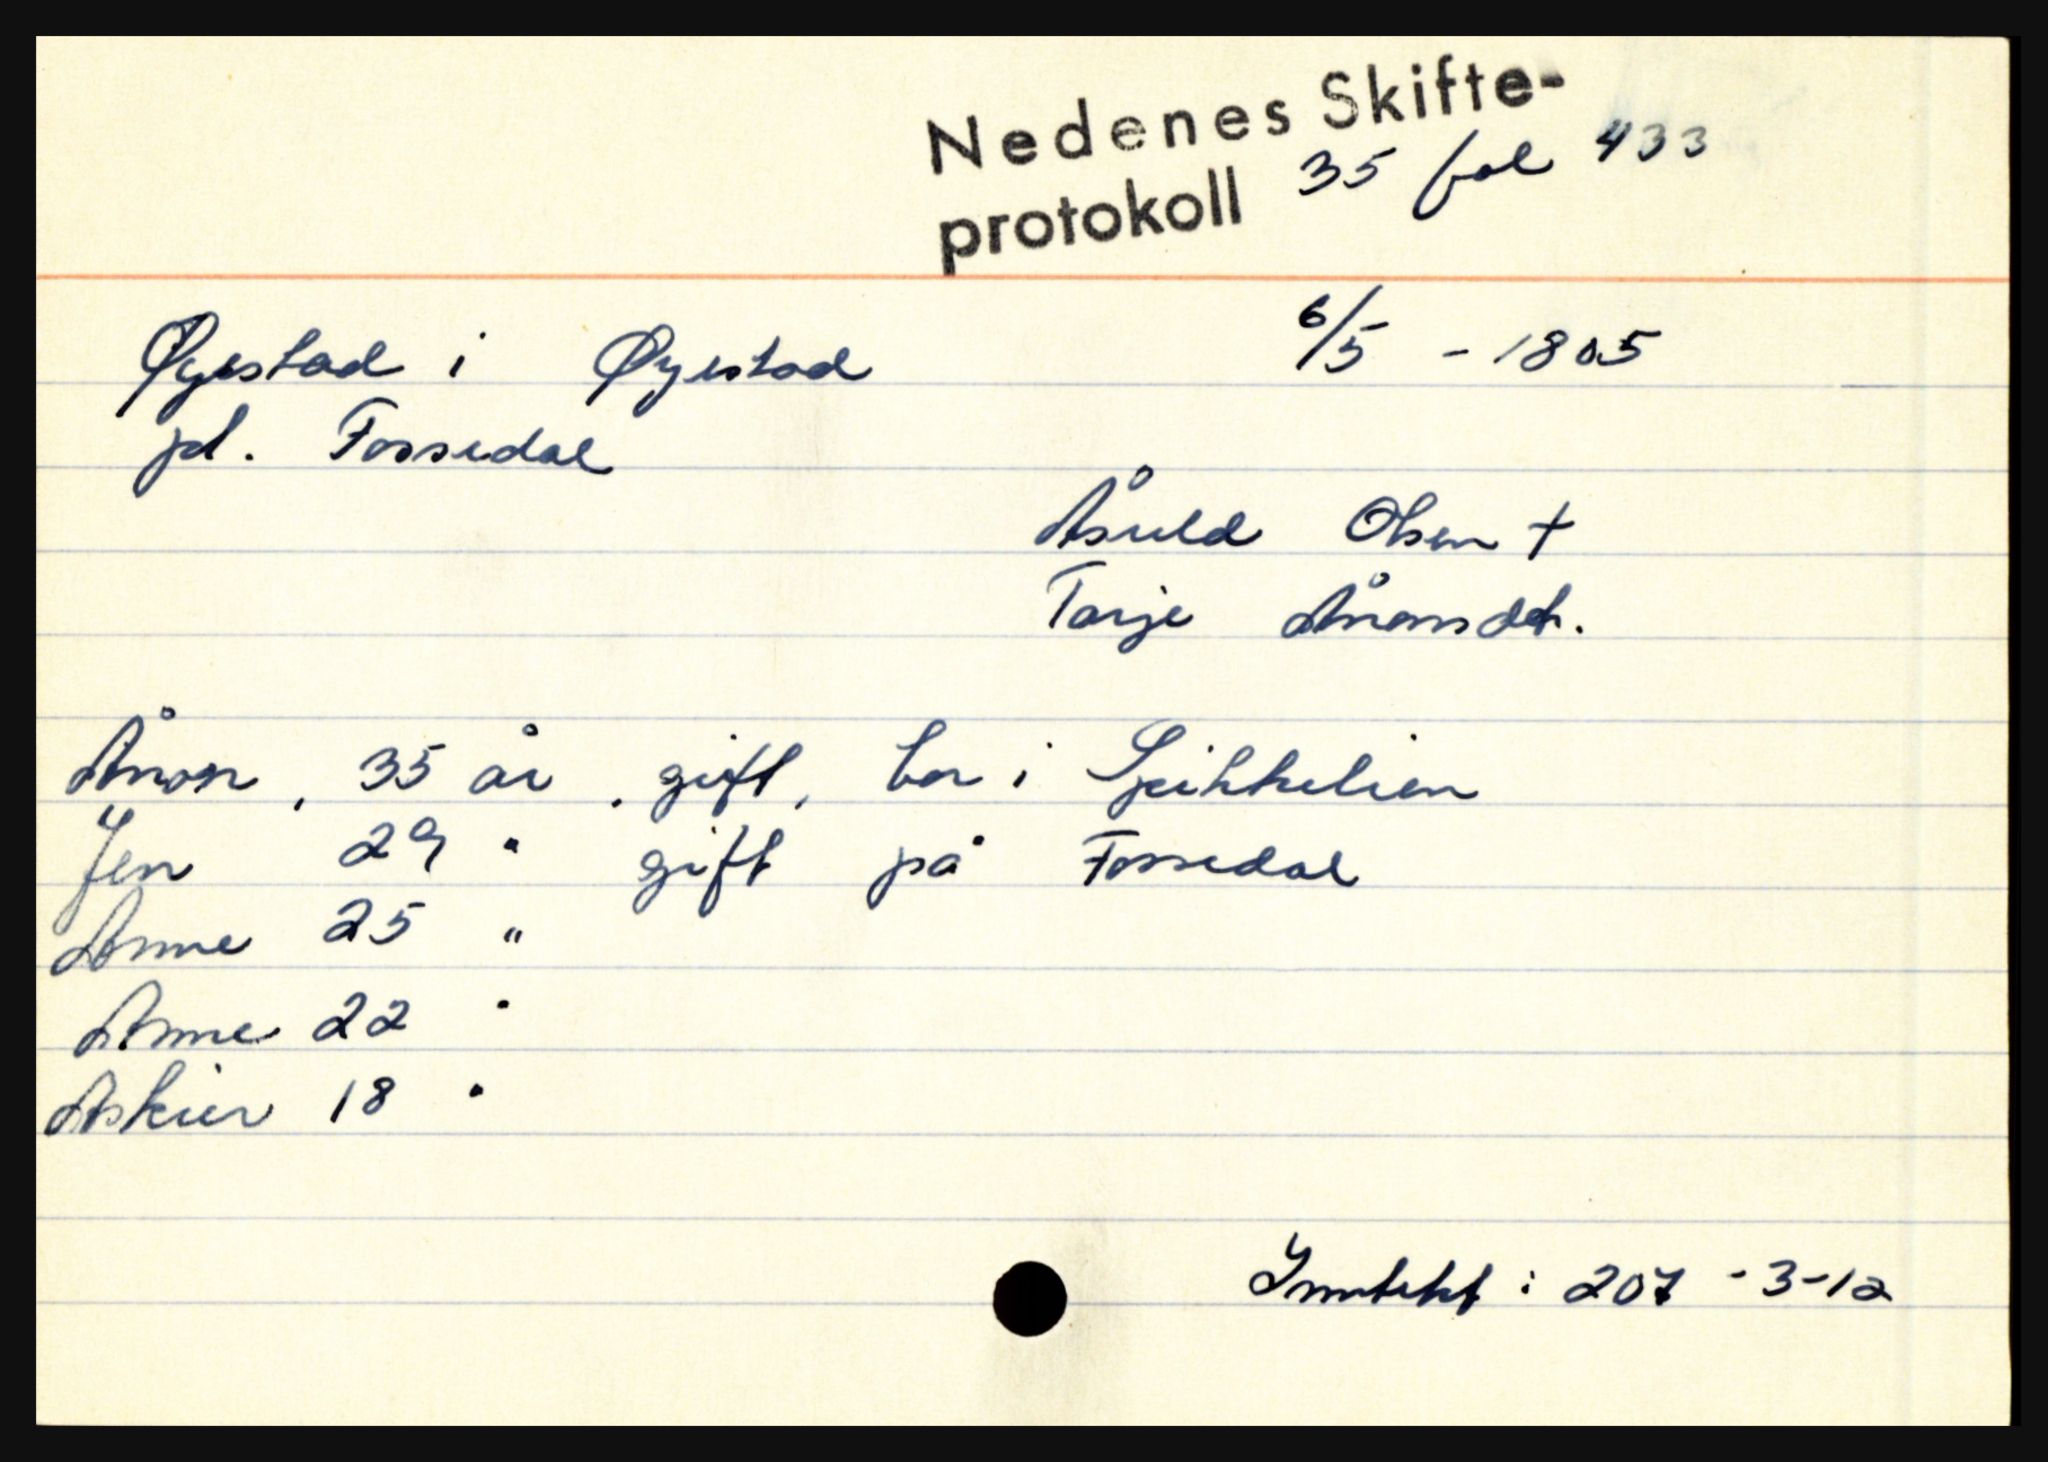 Nedenes Skifte-
protokoll 35 fol 433
Øyestad i Øyestad 6/5 - 1805
pl. Fossedal
Åsuld Olsen †
Tarje Ånonsdtr.
Ånon, 35 år, gift, bor i Spikkelien
Jen 29 " gift på Fossedal
Anne 25 "
Anne 22 "
Askier 18 "
Inntekt: 207 - 3 - 12